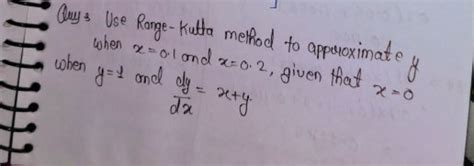 Ques Use Range-Kutta method to approximate y
when x=0.1 and x=0.2, given that x=0
when y=1 and dy/dx = x+y.